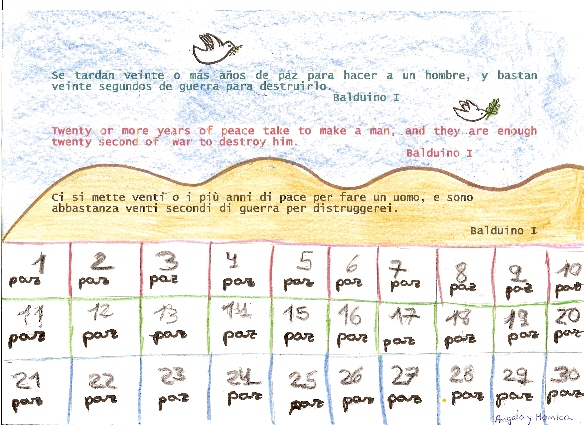 Se tardan veinte o más años de paz para hacer a un hombre, y bastan
veinte segundos de guerra para destruirlo.
Balduino I
Twenty or more years of peace take to make a man, and they are enough
twenty second of war to destroy him.
Balduino I
Ci si mette venti o i più anni di pace per fare un uomo, e sono
abbastanza venti secondi di guerra per distruggerei.
Balduino I
1 2 3 4 5 6 7 8 9 10
paz paz paz paz paz paz paz paz paz paz
11 12 13 14 15 16 17 18 19 20
paz paz paz paz paz paz paz paz paz paz
21 22 23 24 25 26 27 28 29 30
paz paz paz paz paz paz paz paz paz paz
y Mónica